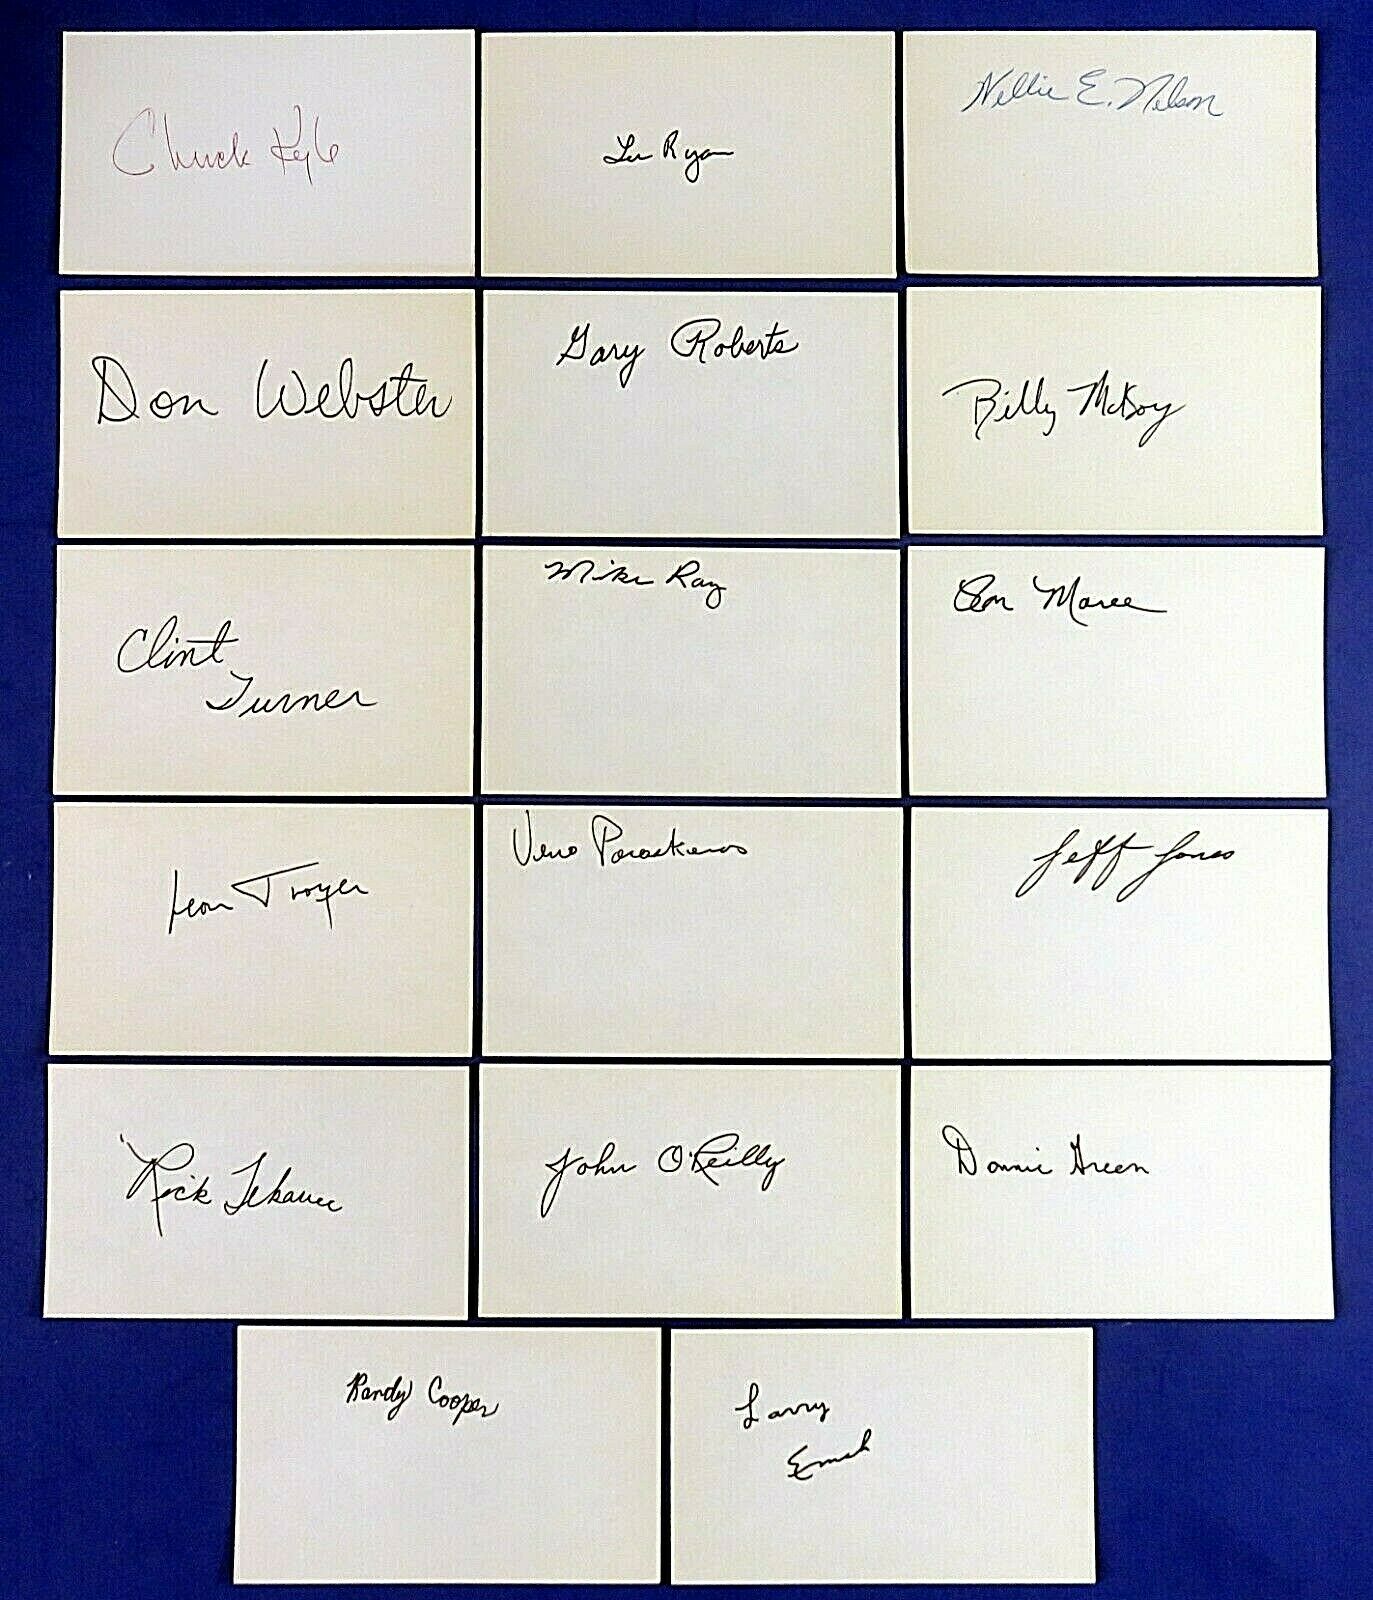 Chuck Kyle
Lee Ryan
Nellie E. Nelson
Don Webster
Gary Roberts
Billy McBoy
Clint
Turner
Mike Ray
Leon Maree
Leon Troyer
Paraskevas
Jeff Jones
Rick
John O'Reilly
Donnie Green
Randy Cooper
Larry